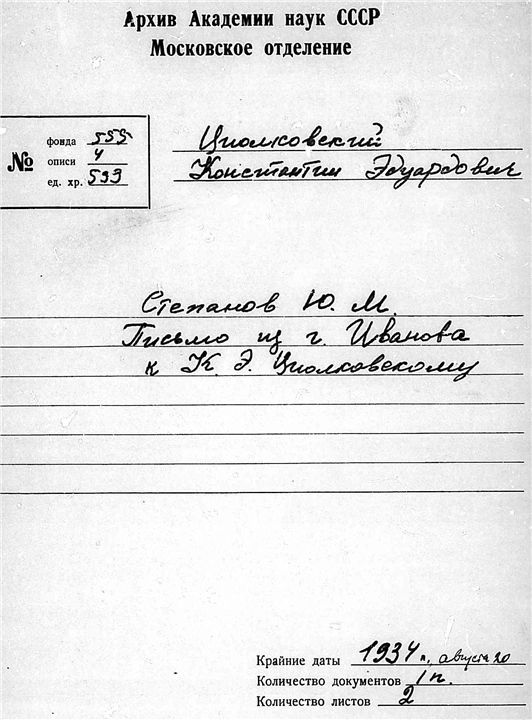 Архив Академии наук СССР
Московское отделение
№
фонда 555
описи 4
ед. хр. 593
Циолковский
Константин Эдуардович
Степанов Ю. М.
Письмо из г. Иванова
к К. Э. Циолковскому
Крайние даты 1934 г., августа 20
Количество документов 1 п.
Количество листов 2